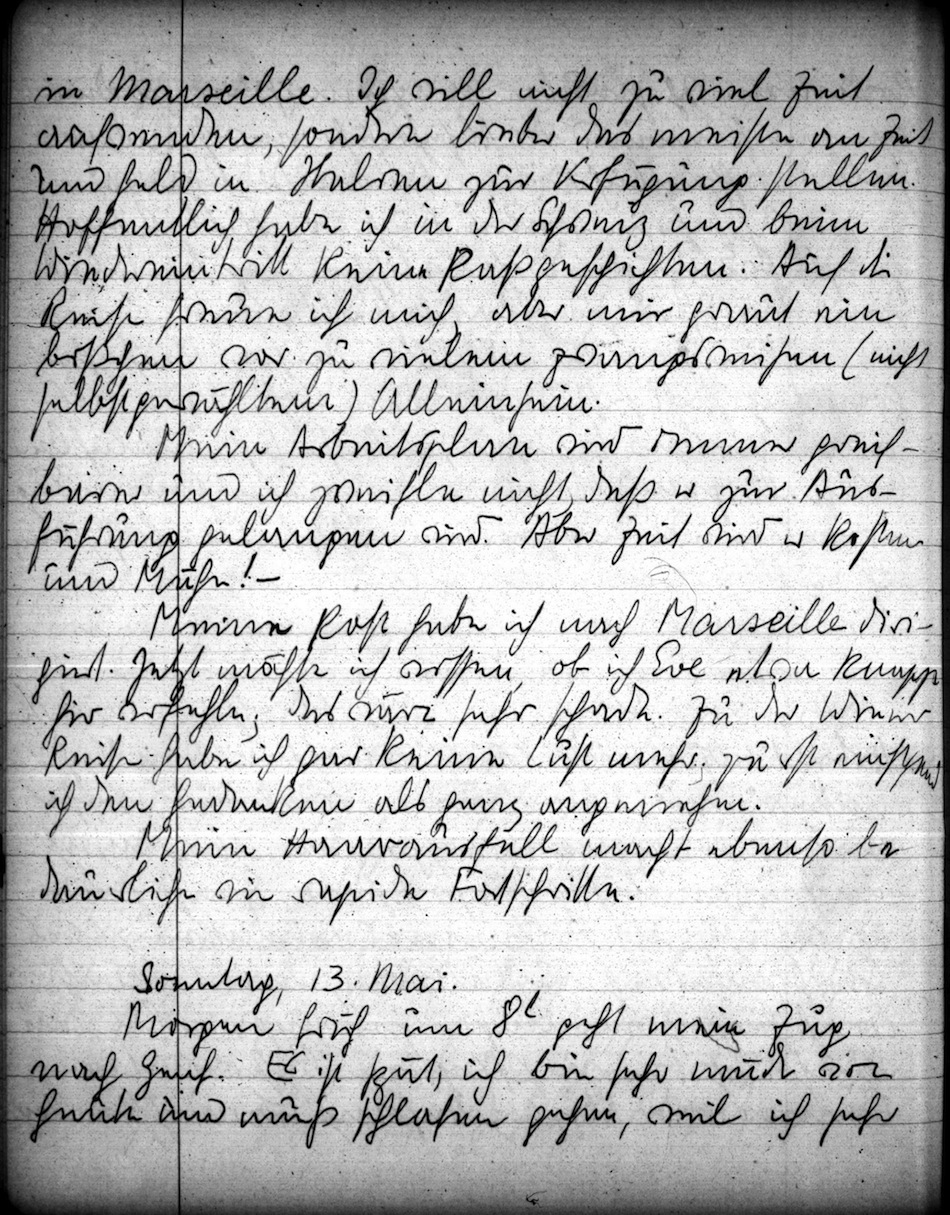 in Marseille. Ich will nicht zu viel Zeit
aufwenden, sondern lieber das meiste an Zeit
und Geld in Italien zur Verfügung stellen.
Hoffentlich habe ich in der Schweiz und beim
Wiedereintritt keine Paßgeschichten. Auf die
Reise freue ich mich, aber mir graut ein
bißchen vor zu vielem zwangsweisen (nicht
selbstgewählten) Alleinsein.
Mein Arbeitsplan wird immer greif-
barer und ich zweifle nicht, daß er zur Aus-
führung gelangen wird. Aber Zeit wird er kosten
und Mühe! –
Meine Post habe ich nach Marseille diri-
giert. Jetzt möchte ich wissen, ob ich Eve etwa knapp
hier verfehle; das wäre sehr schade. Zu der Wiener
Reise habe ich gar keine Lust mehr; zuerst
ich den Gedanken als ganz angenehm.
Mein Haarausfall macht ebenso be
dauerliche wie rapide Fortschritte.
Sonntag, 13. Mai.
Morgen früh um 8h geht mein Zug
nach Genf. Es ist gut, ich bin sehr müde von
heute und muß schlafen gehen, weil ich sehr